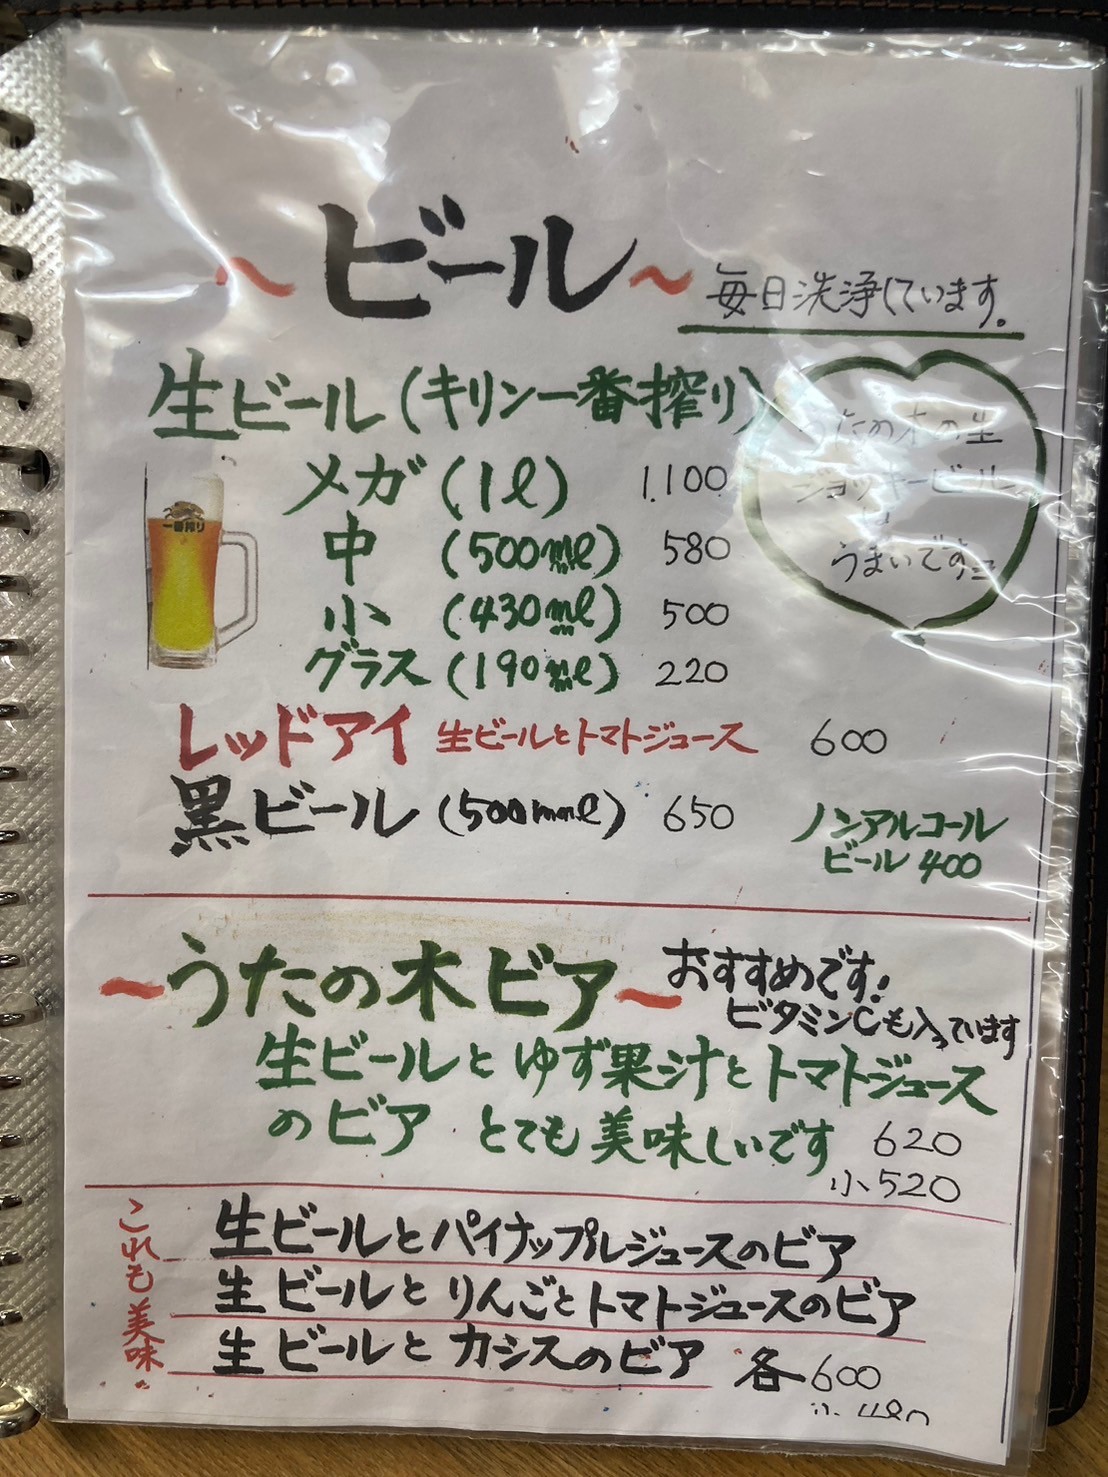 ～ビール～
毎日洗浄しています。
生ビール(キリン一番搾り)
メガ(1ℓ) 1.100
中(500mℓ) 580
小(430mℓ) 500
グラス(190mℓ) 220
一番搾り
うたの木の生
ジョッキービール
は
うまいです
レッドアイ 生ビールとトマトジュース 600
黒ビール(500mℓ) 650
ノンアルコール
ビール 400
～うたの木ビア～
おすすめです!
ビタミンCも入っています
生ビールとゆず果汁とトマトジュース
のビア とても美味しいです 620
小520
これも美味
生ビールとパイナップルジュースのビア
生ビールとりんごとトマトジュースのビア
生ビールとカシスのビア 各600